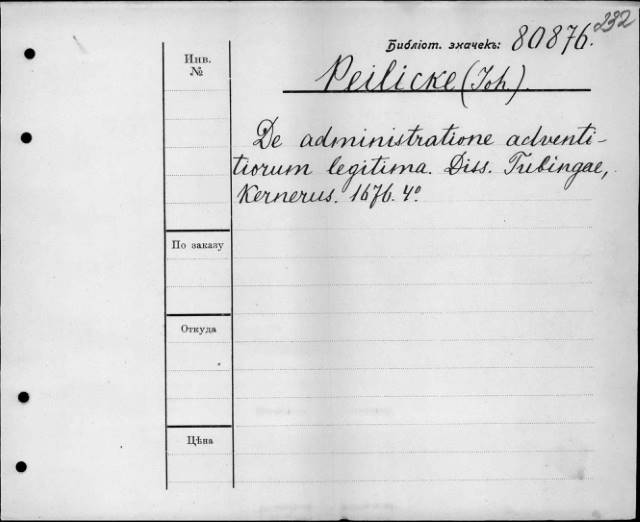 232
Библіот. значекъ: 80876.
Инв.
№
Peilicke (Joh.)
De administratione adventi-
tiorum legitima. Diss. Tubingae,
Kernerus. 1676. 4°
По заказу
Откуда
Цѣна